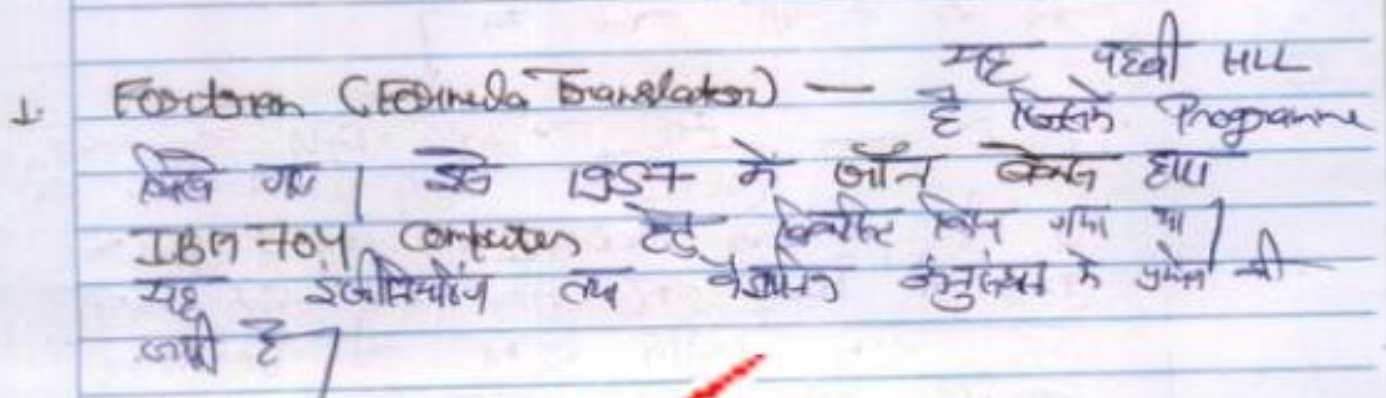 1. Fortran (Formula Translator) — यह पहली HLL
है जिसमें Programme
लिखे गए। इसे 1957 में जॉन बेकस द्वारा
IBM 704 Computer हेतु विकसित किया गया था।
यह इंजीनियरिंग तथा वैज्ञानिक अनुसंधान में प्रयोग की
जाती है।